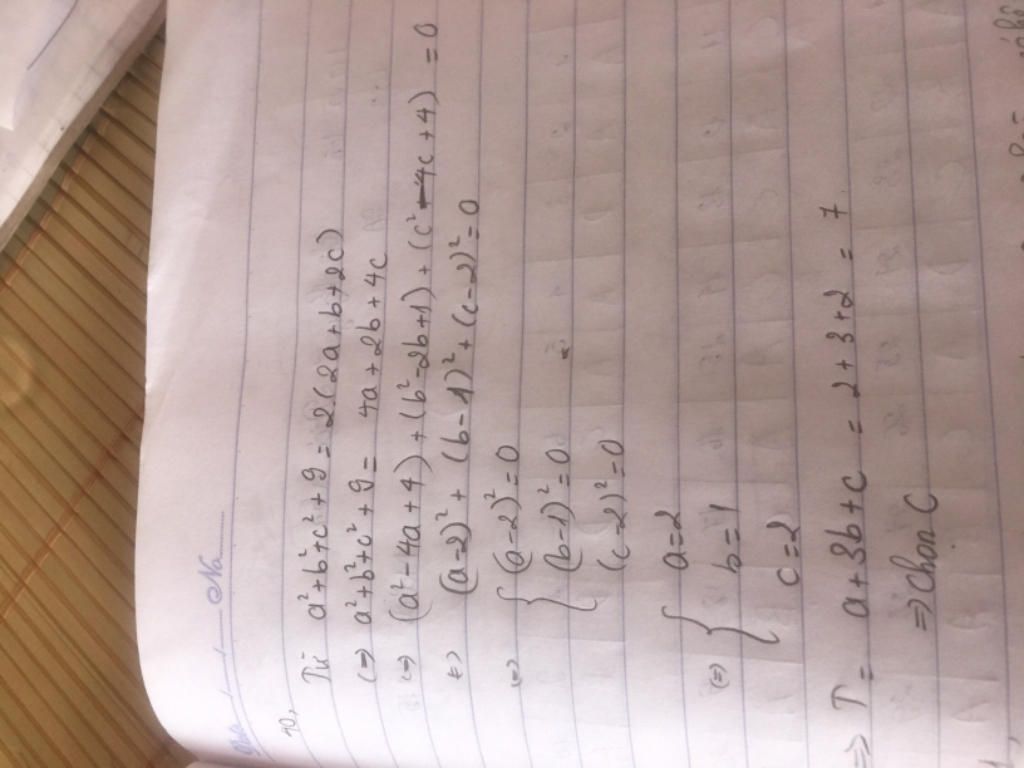 Date / / No
40,
Từ a²+b²+c²+9 = 2(2a+b+2c)
(=) a²+b²+c²+9 = 4a+2b+4c
(=) (a²-4a+4)+(b²-2b+1)+(c²-4c+4)=0
(=) (a-2)²+(b-1)²+(c-2)²=0
(=) { (a-2)²=0
(b-1)²=0
(c-2)²=0
(=) { a=2
b=1
c=2
=> T = a+3b+c = 2+3+2 = 7
=> Chọn C